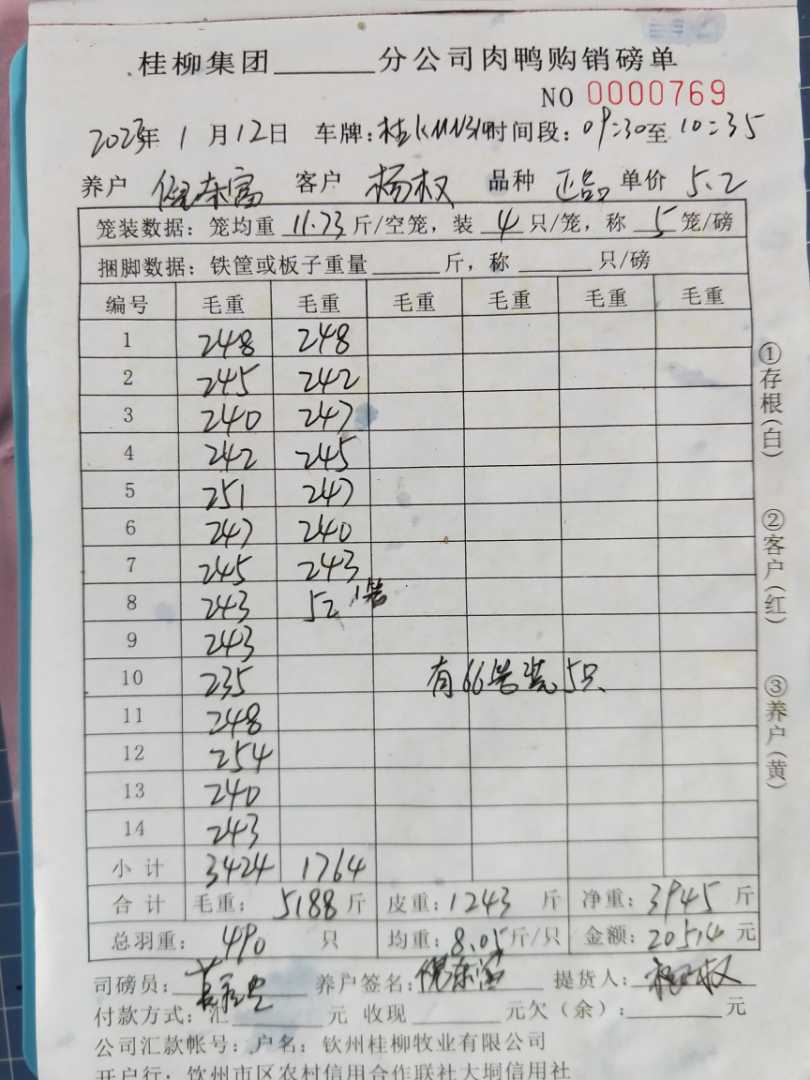 桂柳集团______分公司肉鸭购销磅单
NO 0000769
2023年 1 月 12日 车牌:桂KMN319 时间段:09:30至 10:35
养户 倪东富 客户 杨权 品种 正品 单价 5.2
笼装数据:笼均重 11.73 斤/空笼,装 4 只/笼,称 5 笼/磅
捆脚数据:铁筐或板子重量______斤,称______只/磅
编号 毛重 毛重 毛重 毛重 毛重 毛重
1 248 248
2 245 242
3 240 247
4 242 245
5 251 247
6 247 240
7 245 243
8 243 52 1笼
9 243
10 235 有66笼装5只
11 248
12 254
13 240
14 243
小 计 3424 1764
合 计 毛重: 5188 斤 皮重:1243 斤 净重:3945 斤
总羽重: 490 只 均重:8.05斤/只 金额:20514 元
司磅员: 养户签名:倪东富 提货人:杨权
付款方式:汇______元 收现______元欠(余):______元
公司汇款帐号:户名:钦州桂柳牧业有限公司
开户行:钦州市区农村信用合作联社大垌信用社
①存根(白)
②客户(红)
③养户(黄)